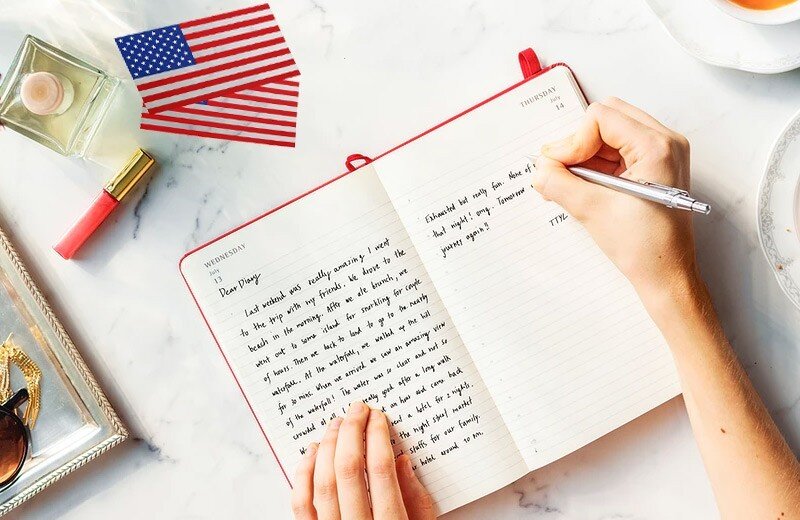 WEDNESDAY
July
13
Dear Diary
Last weekend was really amazing I went
to the trip with my friends. We drove to the
beach in the morning. After we ate brunch, we
went out to some island for snorkling for couple
of hours. Then we back to land to go to the nearby
waterfall. At the waterfall, we walked up the hill
for 30 mins. When we arrived we saw an amazing view
of the waterfall! The water was so clear and not so
crowded at all. really good after a long walk
an hour and came back
a hotel for 2 nights.
to the night street market
and stuffs for our family.
hotel around 10 PM.
THURSDAY
July
14
Exhausted but really fun. None of
that night! omg. Tomorrow
journey again!!
TTYL